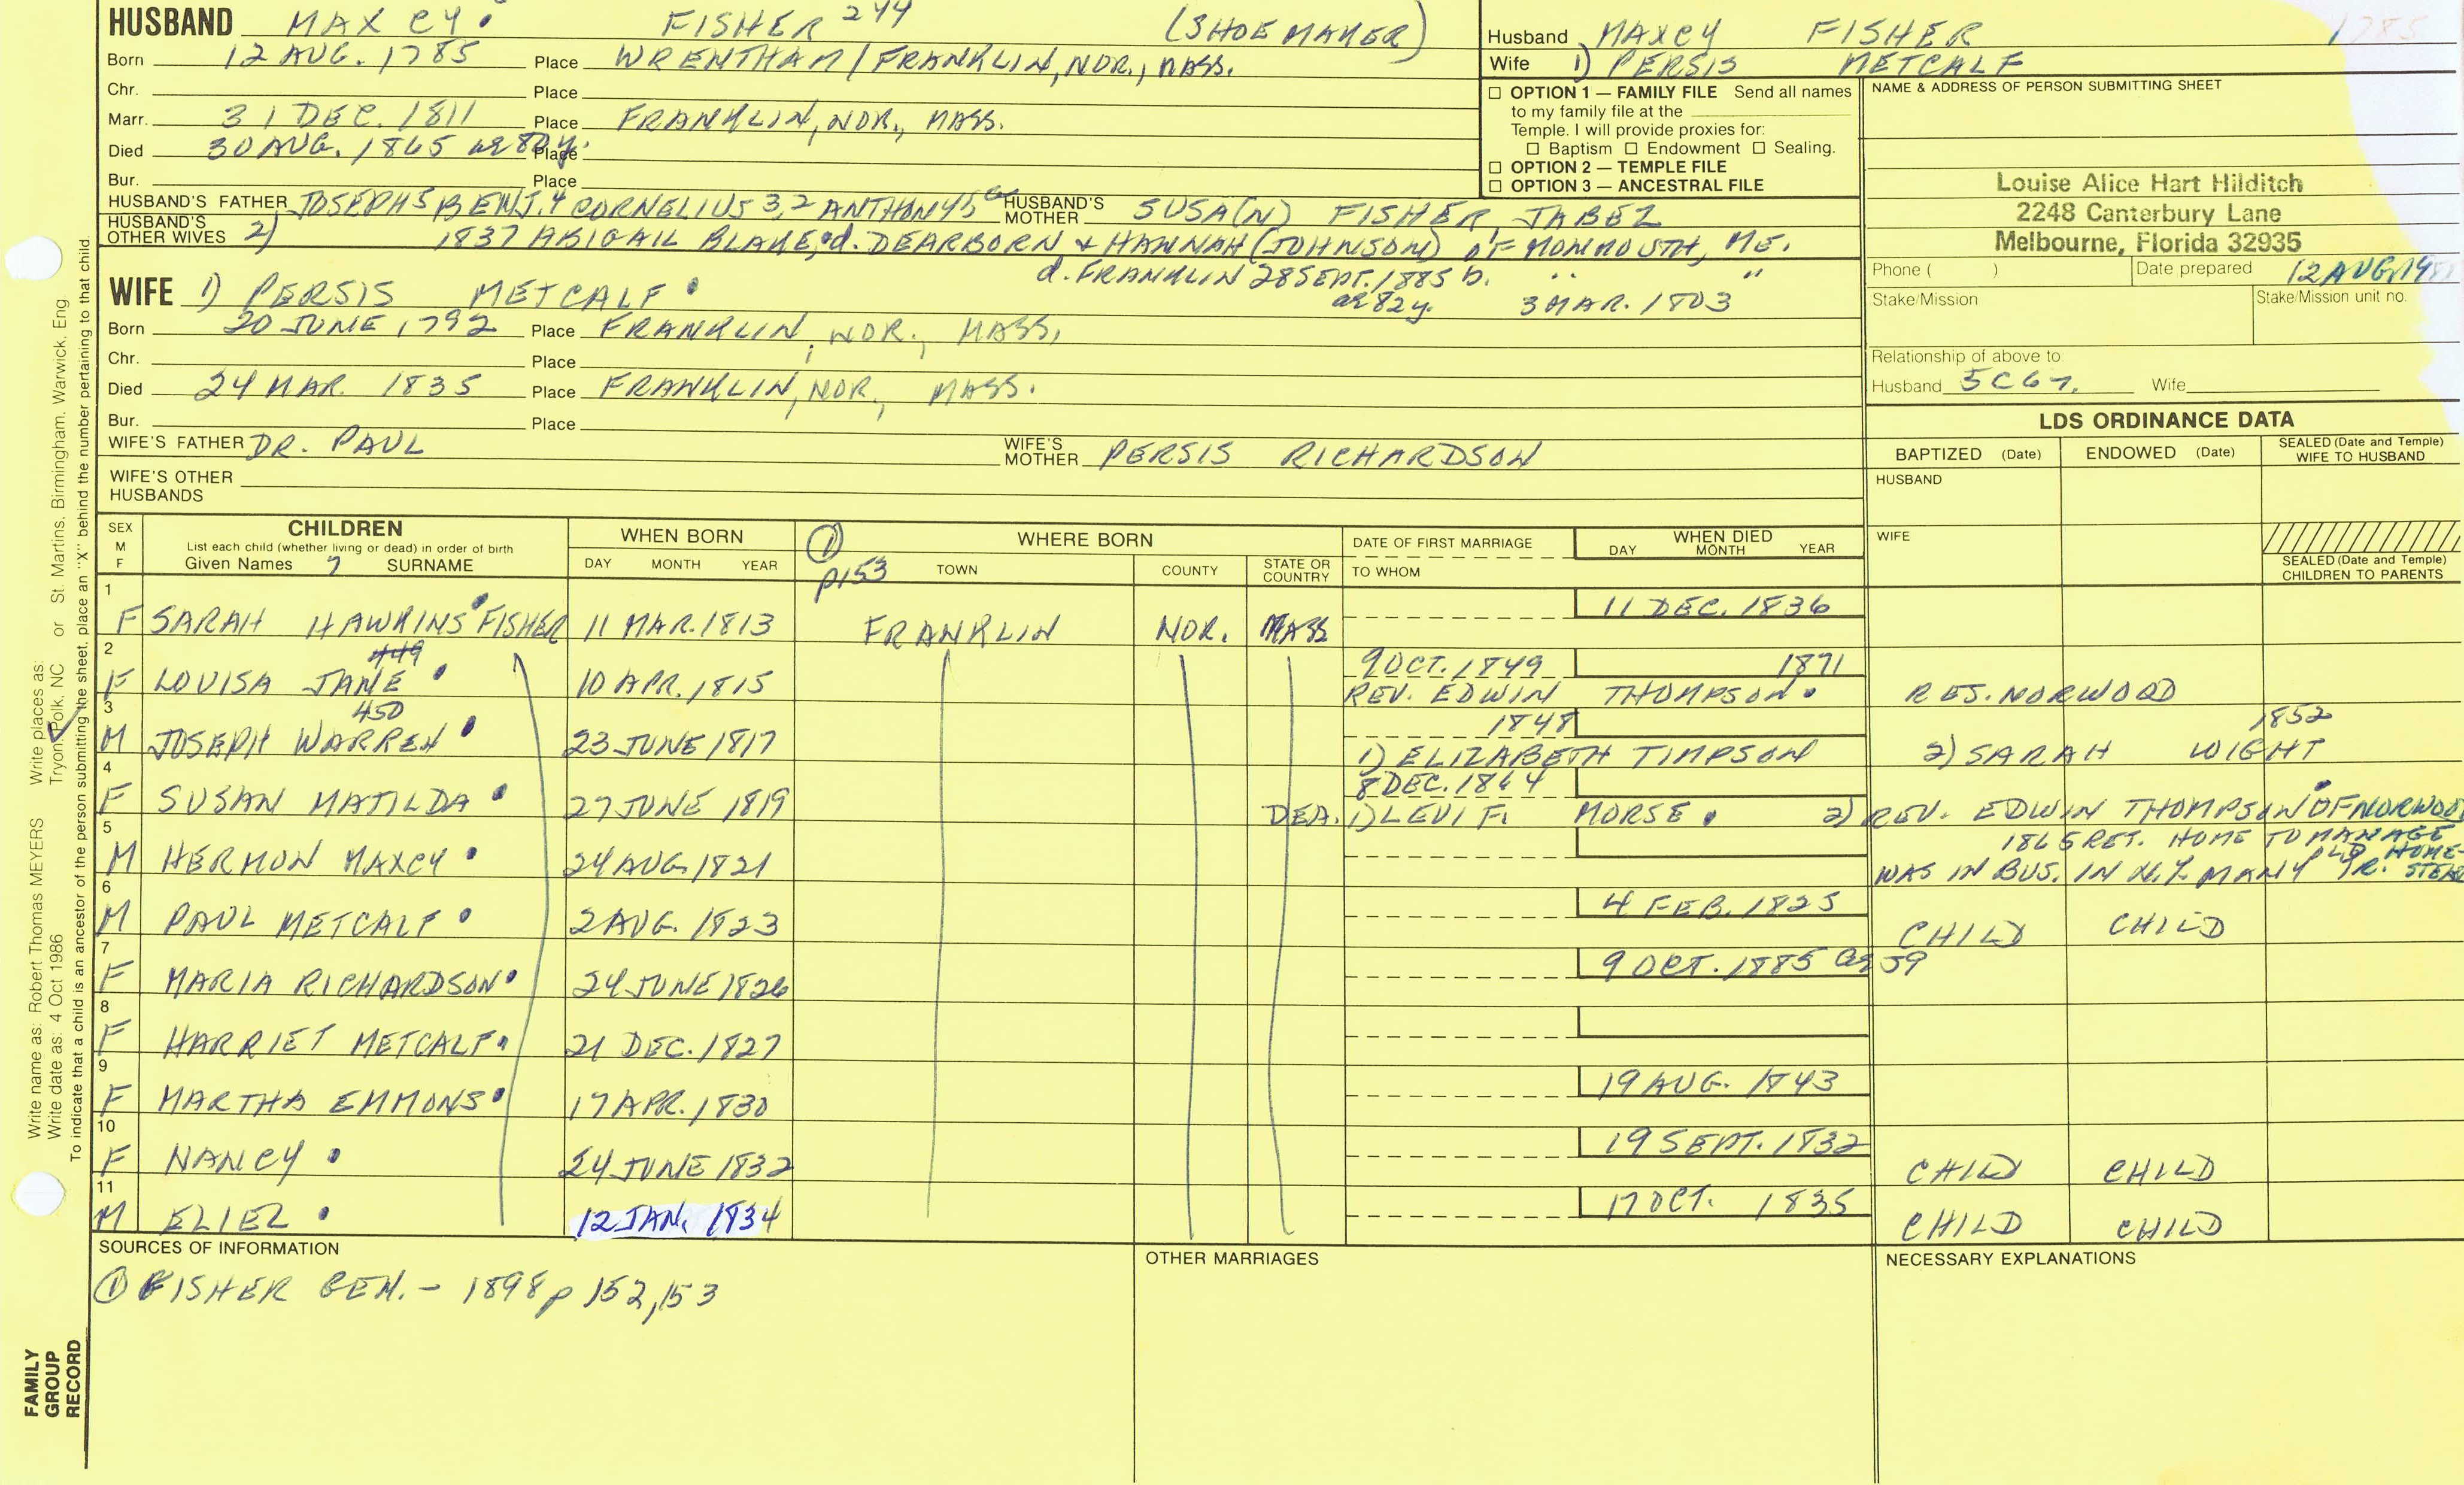 HUSBAND MAXCY FISHER 244 (SHOEMAKER)
Born 12 AUG. 1785 Place WRENTHAM/FRANKLIN, NOR., MASS.
Chr. Place
Marr. 31 DEC. 1811 Place FRANKLIN, NOR., MASS.
Died 30 AUG. 1865 ae 80y. Place
Bur. Place
HUSBAND'S FATHER JOSEPH5 BENJ.4 CORNELIUS 3,2 ANTHONY HUSBAND'S MOTHER SUSA(N) FISHER, JABEZ
HUSBAND'S OTHER WIVES 2) 1837 ABIGAIL BLAKE, d. DEARBORN & HANNAH (JOHNSON) OF MONMOUTH, ME.
d. FRANKLIN 28 SEPT. 1885 b. " "
ae 82y. 3 MAR. 1803
WIFE 1) PERSIS METCALF
Born 20 JUNE 1792 Place FRANKLIN, NOR., MASS.
Chr. Place
Died 24 MAR. 1835 Place FRANKLIN, NOR., MASS.
Bur. Place
WIFE'S FATHER DR. PAUL WIFE'S MOTHER PERSIS RICHARDSON
WIFE'S OTHER HUSBANDS
Husband MAXCY FISHER 1785
Wife 1) PERSIS METCALF
☐ OPTION 1 — FAMILY FILE Send all names
to my family file at the
Temple. I will provide proxies for:
☐ Baptism ☐ Endowment ☐ Sealing.
☐ OPTION 2 — TEMPLE FILE
☐ OPTION 3 — ANCESTRAL FILE
NAME & ADDRESS OF PERSON SUBMITTING SHEET
Louise Alice Hart Hilditch
2248 Canterbury Lane
Melbourne, Florida 32935
Phone ( ) Date prepared 12 AUG.
Stake/Mission Stake/Mission unit no.
Relationship of above to:
Husband 5C6 Wife
LDS ORDINANCE DATA
BAPTIZED (Date) ENDOWED (Date) SEALED (Date and Temple) WIFE TO HUSBAND
HUSBAND
WIFE
SEALED (Date and Temple) CHILDREN TO PARENTS
SEX M F
CHILDREN
List each child (whether living or dead) in order of birth
Given Names SURNAME
WHEN BORN
DAY MONTH YEAR
① p153
WHERE BORN
TOWN COUNTY STATE OR COUNTRY
DATE OF FIRST MARRIAGE
TO WHOM
WHEN DIED
DAY MONTH YEAR
1 11 DEC. 1836
F SARAH HAWKINS FISHER 11 MAR. 1813 FRANKLIN NOR. MASS
2 449 9 OCT. 1849 1871
F LOUISA JANE 10 APR. 1815 REV. EDWIN THOMPSON RES. NORWOOD
3 450 1848 1852
M JOSEPH WARREN 23 JUNE 1817 1) ELIZABETH TIMPSON 2) SARAH WIGHT
4 8 DEC. 1864
F SUSAN MATILDA 27 JUNE 1819 DEA. 1) LEVI F. MORSE 2) REV. EDWIN THOMPSON OF NORWOOD
5 1865 RET. HOME TO MANAGE
M HERMON MAXCY 24 AUG. 1821 WAS IN BUS. IN N.Y. MANY YR. OLD HOMESTEAD
6 4 FEB. 1825
M PAUL METCALF 2 AUG. 1823 CHILD CHILD
7 9 OCT. 1885 ae 59
F MARIA RICHARDSON 24 JUNE 1826
8
F HARRIET METCALF 21 DEC. 1827
9 19 AUG. 1843
F MARTHA EMMONS 17 APR. 1830
10 19 SEPT. 1832
F NANCY 24 JUNE 1832 CHILD CHILD
11 17 OCT. 1835
M ELIEL 12 JAN. 1834 CHILD CHILD
SOURCES OF INFORMATION
① FISHER GEN. - 1898 p 152,153
OTHER MARRIAGES
NECESSARY EXPLANATIONS
Write name as: Robert Thomas MEYERS Write places as:
Write date as: 4 Oct 1986 Tryon, Polk, NC or St. Martins, Birmingham, Warwick, Eng
To indicate that a child is an ancestor of the person submitting the sheet, place an "X" behind the number pertaining to that child.
FAMILY GROUP RECORD